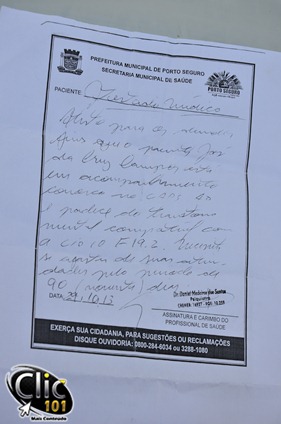 PREFEITURA MUNICIPAL DE PORTO SEGURO
SECRETARIA MUNICIPAL DE SAÚDE
PORTO SEGURO
PACIENTE: Atestado Médico
Atesto para os devidos
fins que o paciente José
da Cruz Campos está
em acompanhamento
conosco no CAPS
e padece de transtorno
mental compatível com
a CID 10 F19.2. Necessita
se afastar de suas ativi
dades pelo período de
90 (noventa) dias
DATA:
Dr. Daniel Medeiros dos Santos
Psiquiatra
ASSINATURA E CARIMBO DO
PROFISSIONAL DE SAÚDE
EXERÇA SUA CIDADANIA, PARA SUGESTÕES OU RECLAMAÇÕES
DISQUE OUVIDORIA: 0800-284-6034 ou 3288-1080
Clic
101
Mais Conteúdo